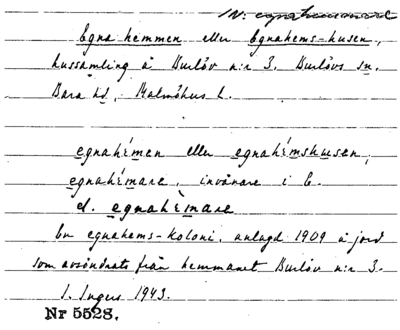 Egnahemmen eller Egnahems-husen,
hussamling å Burlöv n:r 3. Burlövs sn.
Bara hd, Malmöhus l.
egnahémen eller egnahémshusen,
egnahémare, invånare i E.
el. egnahèmare
En egnahems-koloni, anlagd 1909 å jord
som avsöndrats från hemmanet Burlöv n:r 3.
I. Ingers 1943.
Nr 5528.